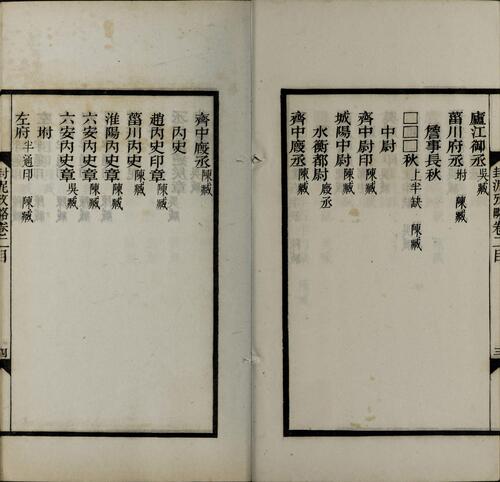 廬江御丞 吳臧
菑川府丞 坿 陳臧
詹事長秋
□□□秋 上半缺 陳臧
中尉
齊中尉印 陳臧
城陽中尉 陳臧
水衡都尉 廄丞
齊中廄丞 陳臧
封泥攷略卷二目
三
齊中廄丞 陳臧
內史
趙內史印章 陳臧
菑川內史 陳臧
淮陽內史章 陳臧
六安內史章 陳臧
六安內史章 吳臧
坿
左府 半通印 陳臧
封泥攷略卷二目
四